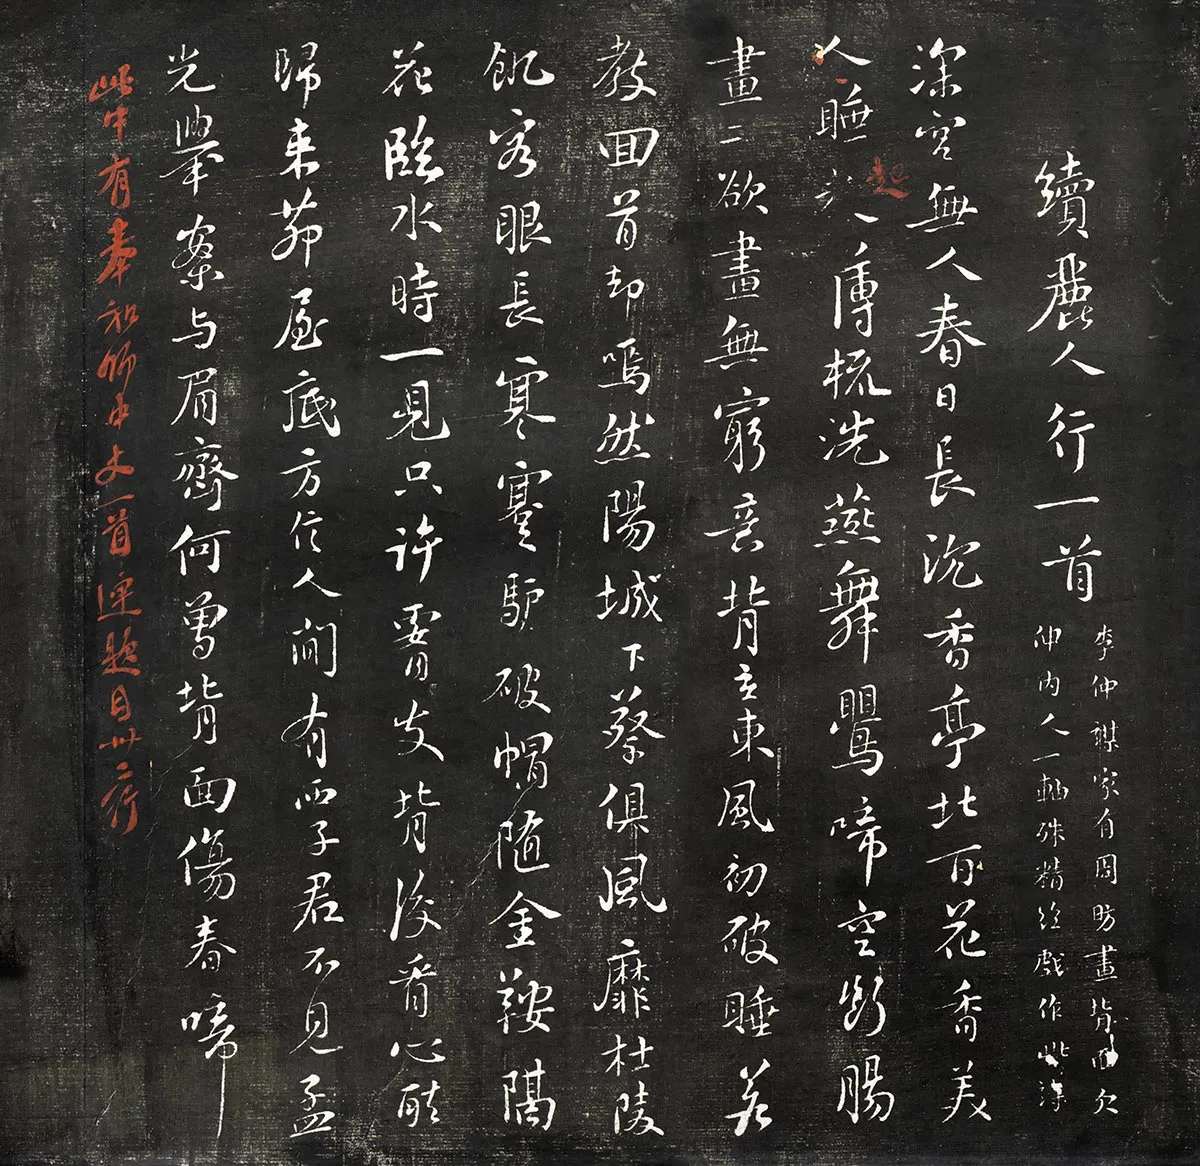 續麗人行一首
李仲謀家有周昉畫背面欠
伸內人一軸殊精絕戲作此詩
深宮無人春日長沉香亭北百花香美
人睡起薄梳洗燕舞鶯啼空斷腸
畫工欲畫無窮意背立東風初破睡若
教回首却嫣然陽城下蔡俱風靡杜陵
飢客眼長寒蹇驢破帽隨金鞍隔
花臨水時一見只許腰支背後看心醉
歸来茆屋底方信人間有西子君不見孟
光舉案与眉齊何曾背面傷春啼
此中有奉和師中丈一首連題目卅二行